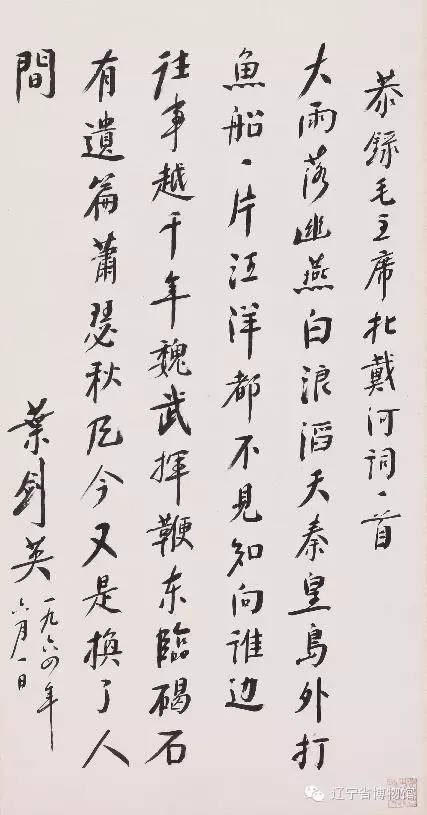 恭録毛主席北戴河詞一首
大雨落幽燕白浪滔天秦皇島外打
魚船一片汪洋都不見知向誰边
往事越千年魏武揮鞭东臨碣石
有遺篇蕭瑟秋风今又是换了人
間
葉劍英
一九六四年
六月一日
辽宁省博物馆